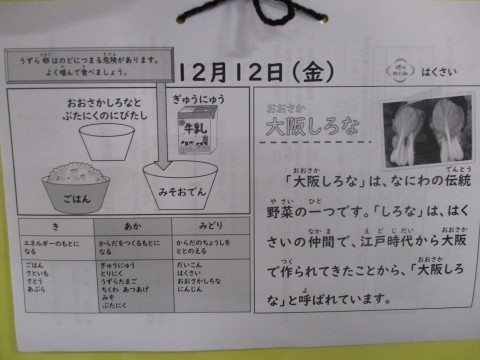 うずら卵はのどにつまる危険があります。
よく噛んで食べましょう。
12月12日(金)
はくさい
おおさかしろなと
ぶたにくのにびたし
ぎゅうにゅう
牛乳
ごはん
みそおでん
き
あか
みどり
エネルギーのもとに
なる
からだをつくるもとに
なる
からだのちょうしを
ととのえる
ごはん
さといも
さとう
あぶら
ぎゅうにゅう
とりにく
うずらたまご
ちくわ あつあげ
みそ
ぶたにく
だいこん
はくさい
おおさかしろな
にんじん
おおさか
大阪しろな
おおさか でんとう
「大阪しろな」は、なにわの伝統
やさい ひと
野菜の一つです。「しろな」は、はく
なかま えどじだい おおさか
さいの仲間で、江戸時代から大阪
つく おおさか
で作られてきたことから、「大阪しろ
よ
な」と呼ばれています。